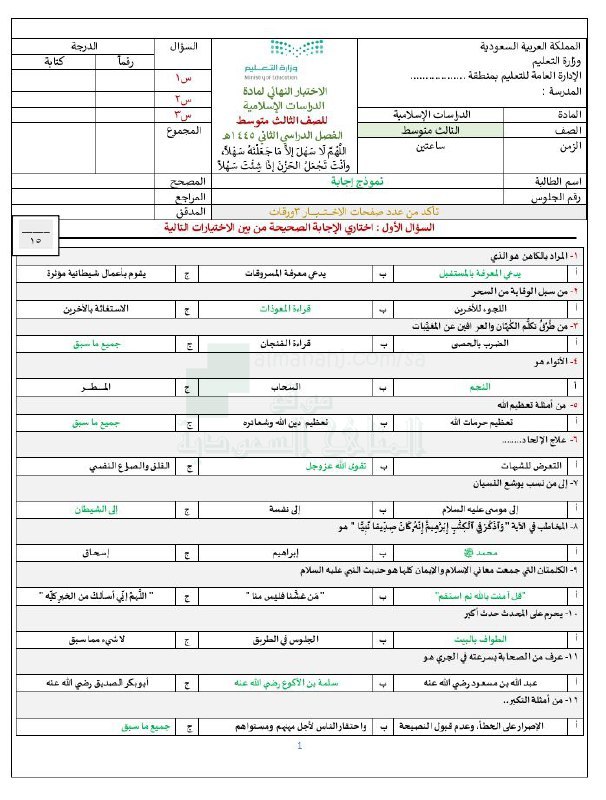 المملكة العربية السعودية
وزارة التعليم
الإدارة العامة للتعليم بمنطقة ..................
المدرسة :
المادة الدراسات الإسلامية
الصف الثالث متوسط
الزمن ساعتين
وزارة التعليم
Ministry of Education
الاختبار النهائي لمادة
الدراسات الإسلامية
للصف الثالث متوسط
الفصل الدراسي الثاني ١٤٤٥هـ
اللَّهُمَّ لَا سَهْلَ إِلَّا مَا جَعَلْتَهُ سَهْلًا،
وَأَنْتَ تَجْعَلُ الحَزْنَ إِذَا شِئْتَ سَهْلًا
السؤال الدرجة
رقماً كتابة
س١
س٢
س٣
المجموع
اسم الطالبة نموذج إجابة المصحح
رقم الجلوس المراجع
تأكد من عدد صفحات الاختبار ٣ورقات المدقق
١٥
السؤال الأول : اختاري الإجابة الصحيحة من بين الاختيارات التالية
١- المراد بالكاهن هو الذي
أ يدعي المعرفة بالمستقبل ب يدعي معرفة المسروقات ج يقوم بأعمال شيطانية مؤثرة
٢- من سبل الوقاية من السحر
أ اللجوء للآخرين ب قراءة المعوذات ج الاستغاثة بالآخرين
٣- من طُرُق تكلُّم الكُهّان والعرافين عن المغيَّبات
أ الضرب بالحصى ب قراءة الفنجان ج جميع ما سبق
٤- الأنواء هو
أ النجم ب السحاب ج المطر
almanahj.com/sa
موقع
المناهج السعودية
٥- من أمثلة تعظيم الله
أ تعظيم حرمات الله ب تعظيم دين الله وشعائره ج جميع ما سبق
٦- علاج الإلحاد........
أ التعرض للشبهات ب تقوى الله عزوجل ج القلق والصراع النفسي
٧- إلى من نسب يوشع النسيان
أ إلى موسى عليه السلام ب إلى نفسة ج إلى الشيطان
٨- المخاطب في الآية " وَٱذْكُرْ فِي ٱلْكِتَٰبِ إِبْرَٰهِيمَ إِنَّهُۥ كَانَ صِدِّيقًا نَّبِيًّا " هو
أ محمد ﷺ ب إبراهيم ج إسحاق
٩- الكلمتان التي جمعت معاني الإسلام والإيمان كلها هو حديث النبي عليه السلام
أ "قل آمنت بالله ثم استقم" ب " مَن غشَّنا فليس منا " ج " اللَّهمَّ إنِّي أسألُكَ من الخيرِ كلِّه "
١٠- يحرم على المحدث حدث أكبر
أ الطواف بالبيت ب الجلوس في الطريق ج لا شيء مما سبق
١١- عرف من الصحابة بسرعته في الجري هو
أ عبد الله بن مسعود رضي الله عنه ب سلمة بن الأكوع رضي الله عنه ج أبوبكر الصديق رضي الله عنه
١٢- من أمثلة التكبر..
أ الإصرار على الخطأ، وعدم قبول النصيحة ب واحتقار الناس لأجل مهنهم ومستواهم ج جميع ما سبق
1